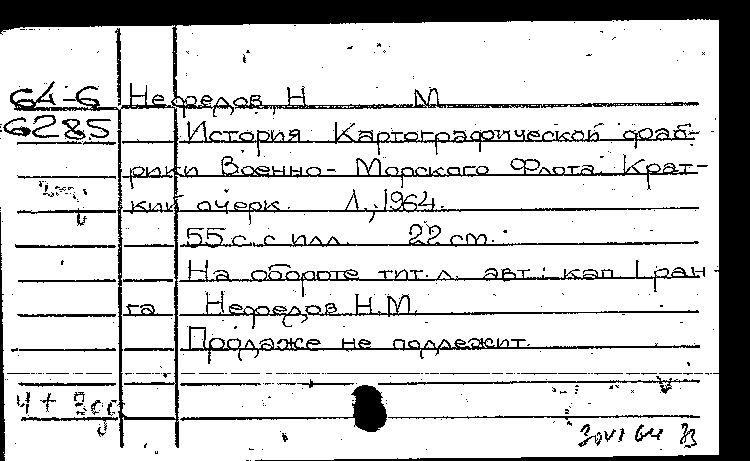 64-6 Нефедов, Н М
6285 История Картографической фаб-
рики Военно-Морского Флота. Крат-
кий очерк. Л., 1964.
55 с. с илл. 22 см.
На обороте тит. л. авт.: кап. I ран-
га Нефедов Н.М.
Продаже не подлежит.
4 +